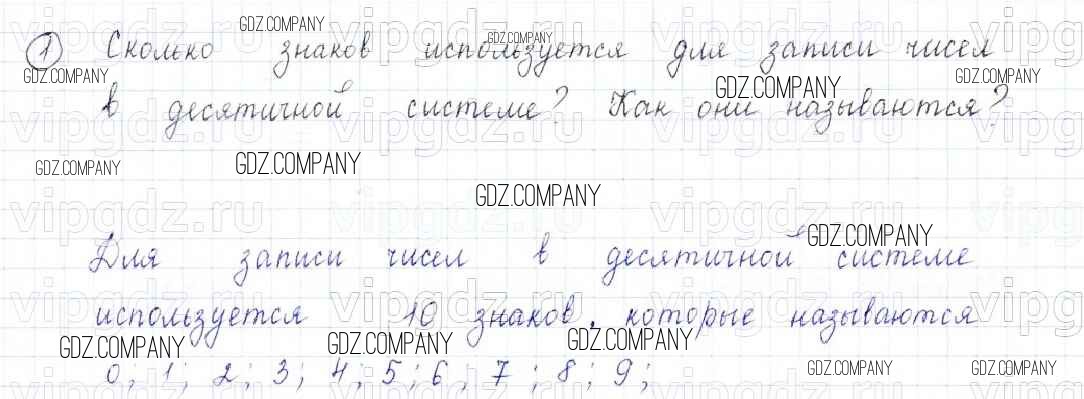 1 Сколько знаков используется для записи чисел
в десятичной системе? Как они называются?
Для записи чисел в десятичной системе
используется 10 знаков, которые называются
0; 1; 2; 3; 4; 5; 6, 7; 8; 9;
GDZ.COMPANY
GDZ.COMPANY
GDZ.COMPANY
GDZ.COMPANY
GDZ.COMPANY
GDZ.COMPANY
GDZ.COMPANY
GDZ.COMPANY
GDZ.COMPANY
GDZ.COMPANY
GDZ.COMPANY
GDZ.COMPANY
GDZ.COMPANY
GDZ.COMPANY
vipgdz.ru